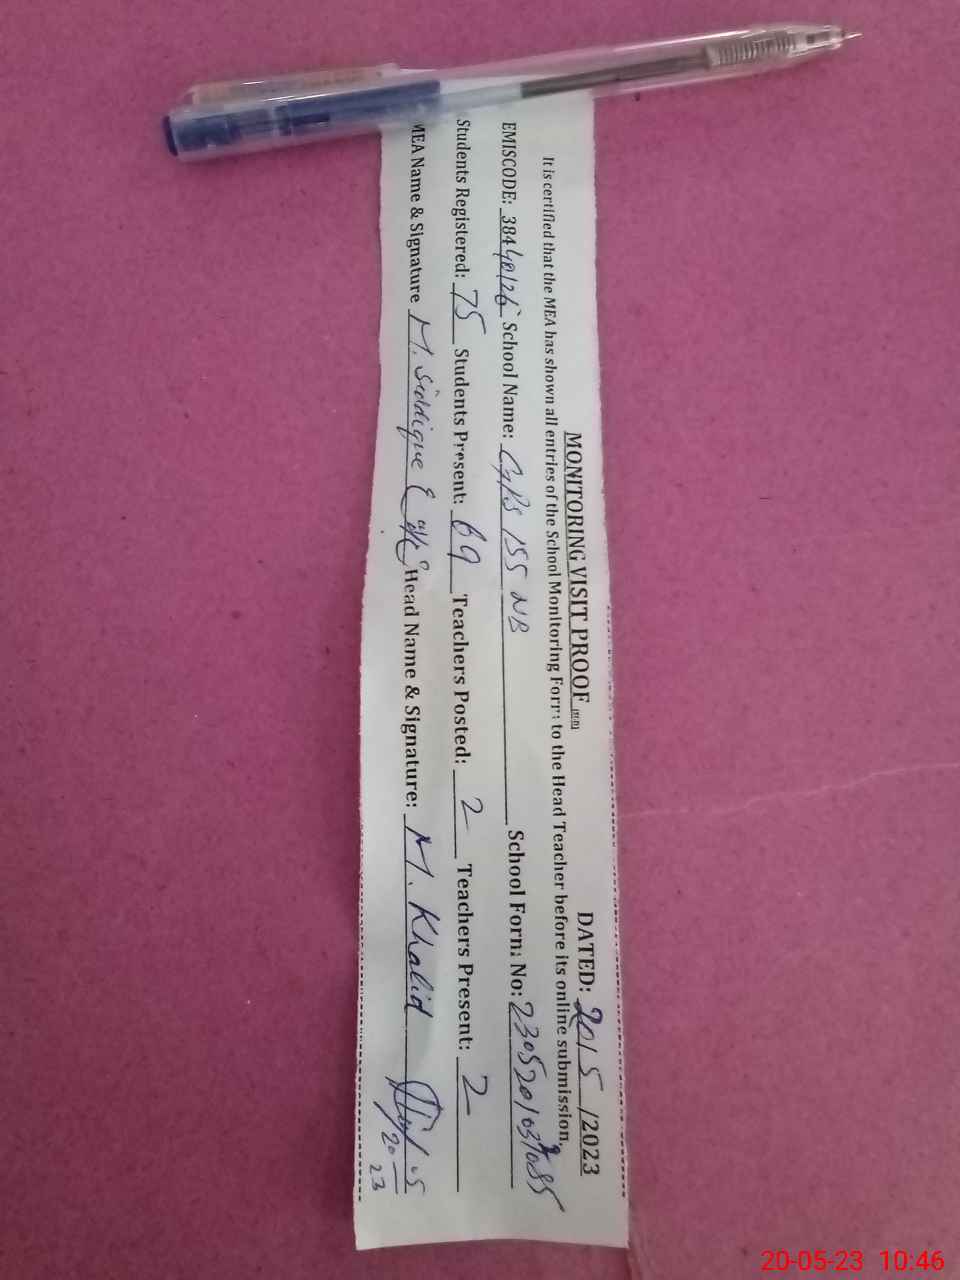 MONITORING VISIT PROOF DATED: 20/5/2023
It is certified that the MEA has shown all entries of the School Monitoring Form to the Head Teacher before its online submission.
EMISCODE: 38440126 School Name: GPS 155 NB School Form No:
Students Registered: 75 Students Present: 69 Teachers Posted: 2 Teachers Present: 2
MEA Name & Signature M. Siddique Head Name & Signature: M. Khalid
20-05-23 10:46